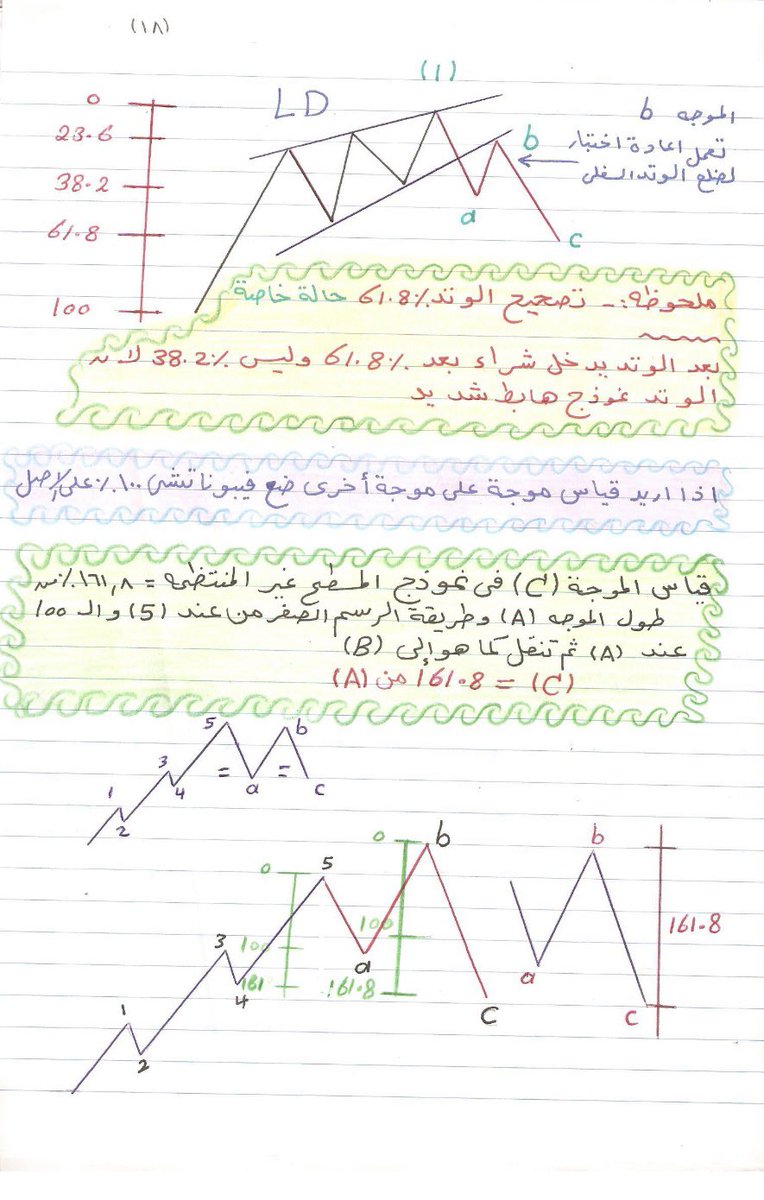 (١٨)
(1)
LD
0
23.6
38.2
61.8
100
الموجه b
تعمل اعادة اختبار
لضلع الوتد السفلى
b
a
c
ملحوظة:- تصحيح الوتد 61.8٪ حالة خاصة
بعد الوتد يدخل شراء بعد 61.8٪ وليس 38.2٪ لان
الوتد نموذج هابط شديد
اذا اريد قياس موجة على موجة أخرى ضع فيبوناتشى ١٠٠٪ على الاصل
قياس الموجة (C) فى نموذج المسطح غير المنتظمه = ١٦١,٨٪ من
طول الموجه (A) وطريقة الرسم الصفر من عند (5) والـ 100
عند (A) ثم تنقل كما هو إلى (B)
(C) = 161.8 من (A)
1
2
3
4
5
=
a
=
b
c
1
2
3
4
5
0
100
161
a
0
100
161.8
b
c
a
b
c
161.8